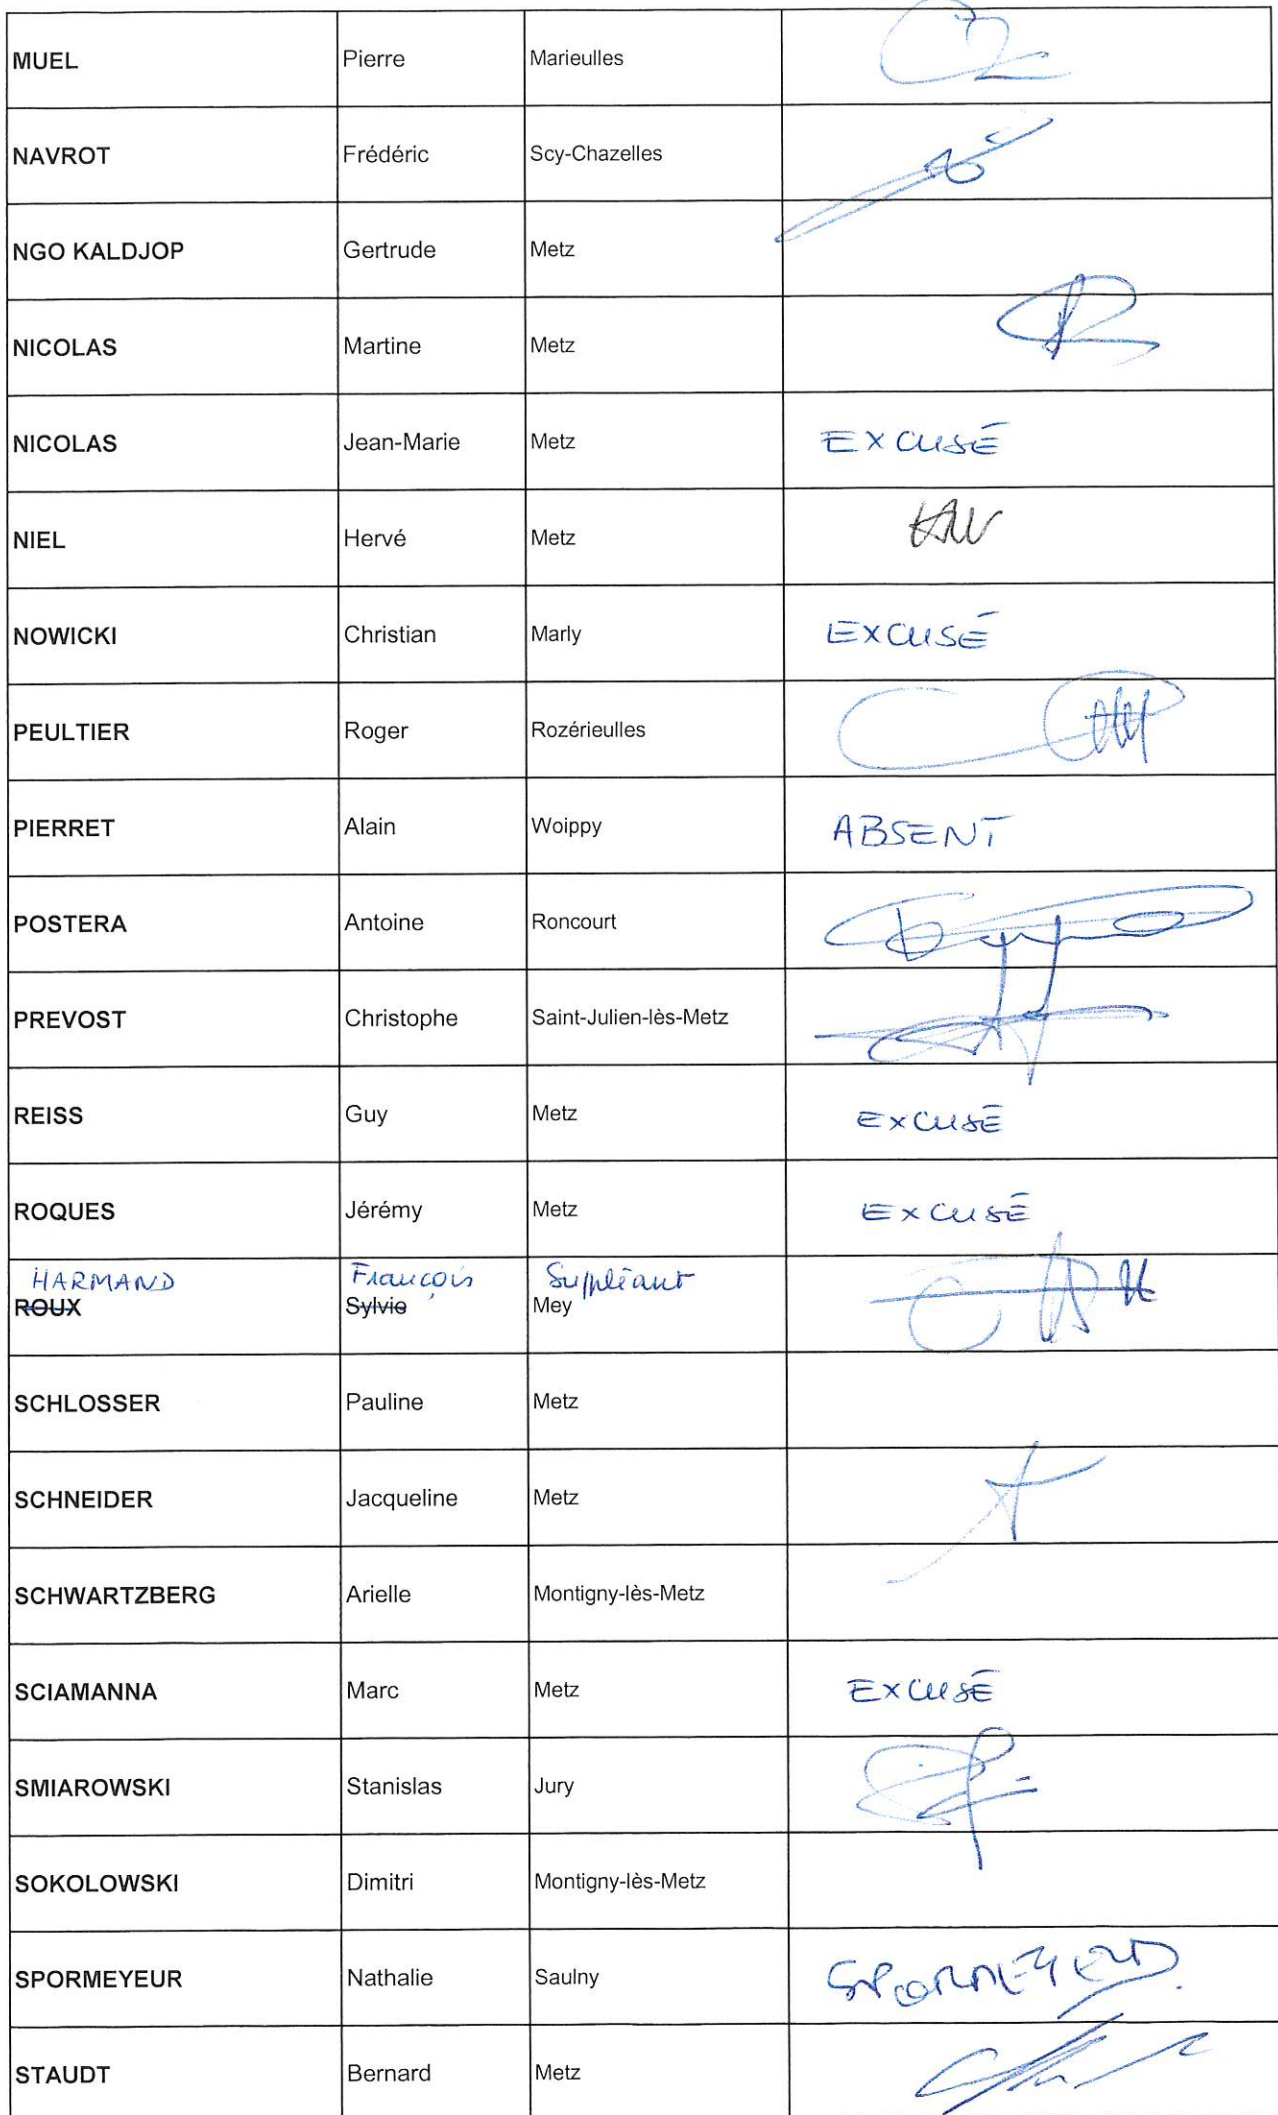 MUEL Pierre Marieulles
NAVROT Frédéric Scy-Chazelles
NGO KALDJOP Gertrude Metz
NICOLAS Martine Metz
NICOLAS Jean-Marie Metz EXCUSÉ
NIEL Hervé Metz
NOWICKI Christian Marly EXCUSÉ
PEULTIER Roger Rozérieulles
PIERRET Alain Woippy ABSENT
POSTERA Antoine Roncourt
PREVOST Christophe Saint-Julien-lès-Metz
REISS Guy Metz EXCUSÉ
ROQUES Jérémy Metz EXCUSÉ
HARMAND François Suppléant
ROUX Sylvie Mey
SCHLOSSER Pauline Metz
SCHNEIDER Jacqueline Metz
SCHWARTZBERG Arielle Montigny-lès-Metz
SCIAMANNA Marc Metz EXCUSÉ
SMIAROWSKI Stanislas Jury
SOKOLOWSKI Dimitri Montigny-lès-Metz
SPORMEYEUR Nathalie Saulny
STAUDT Bernard Metz